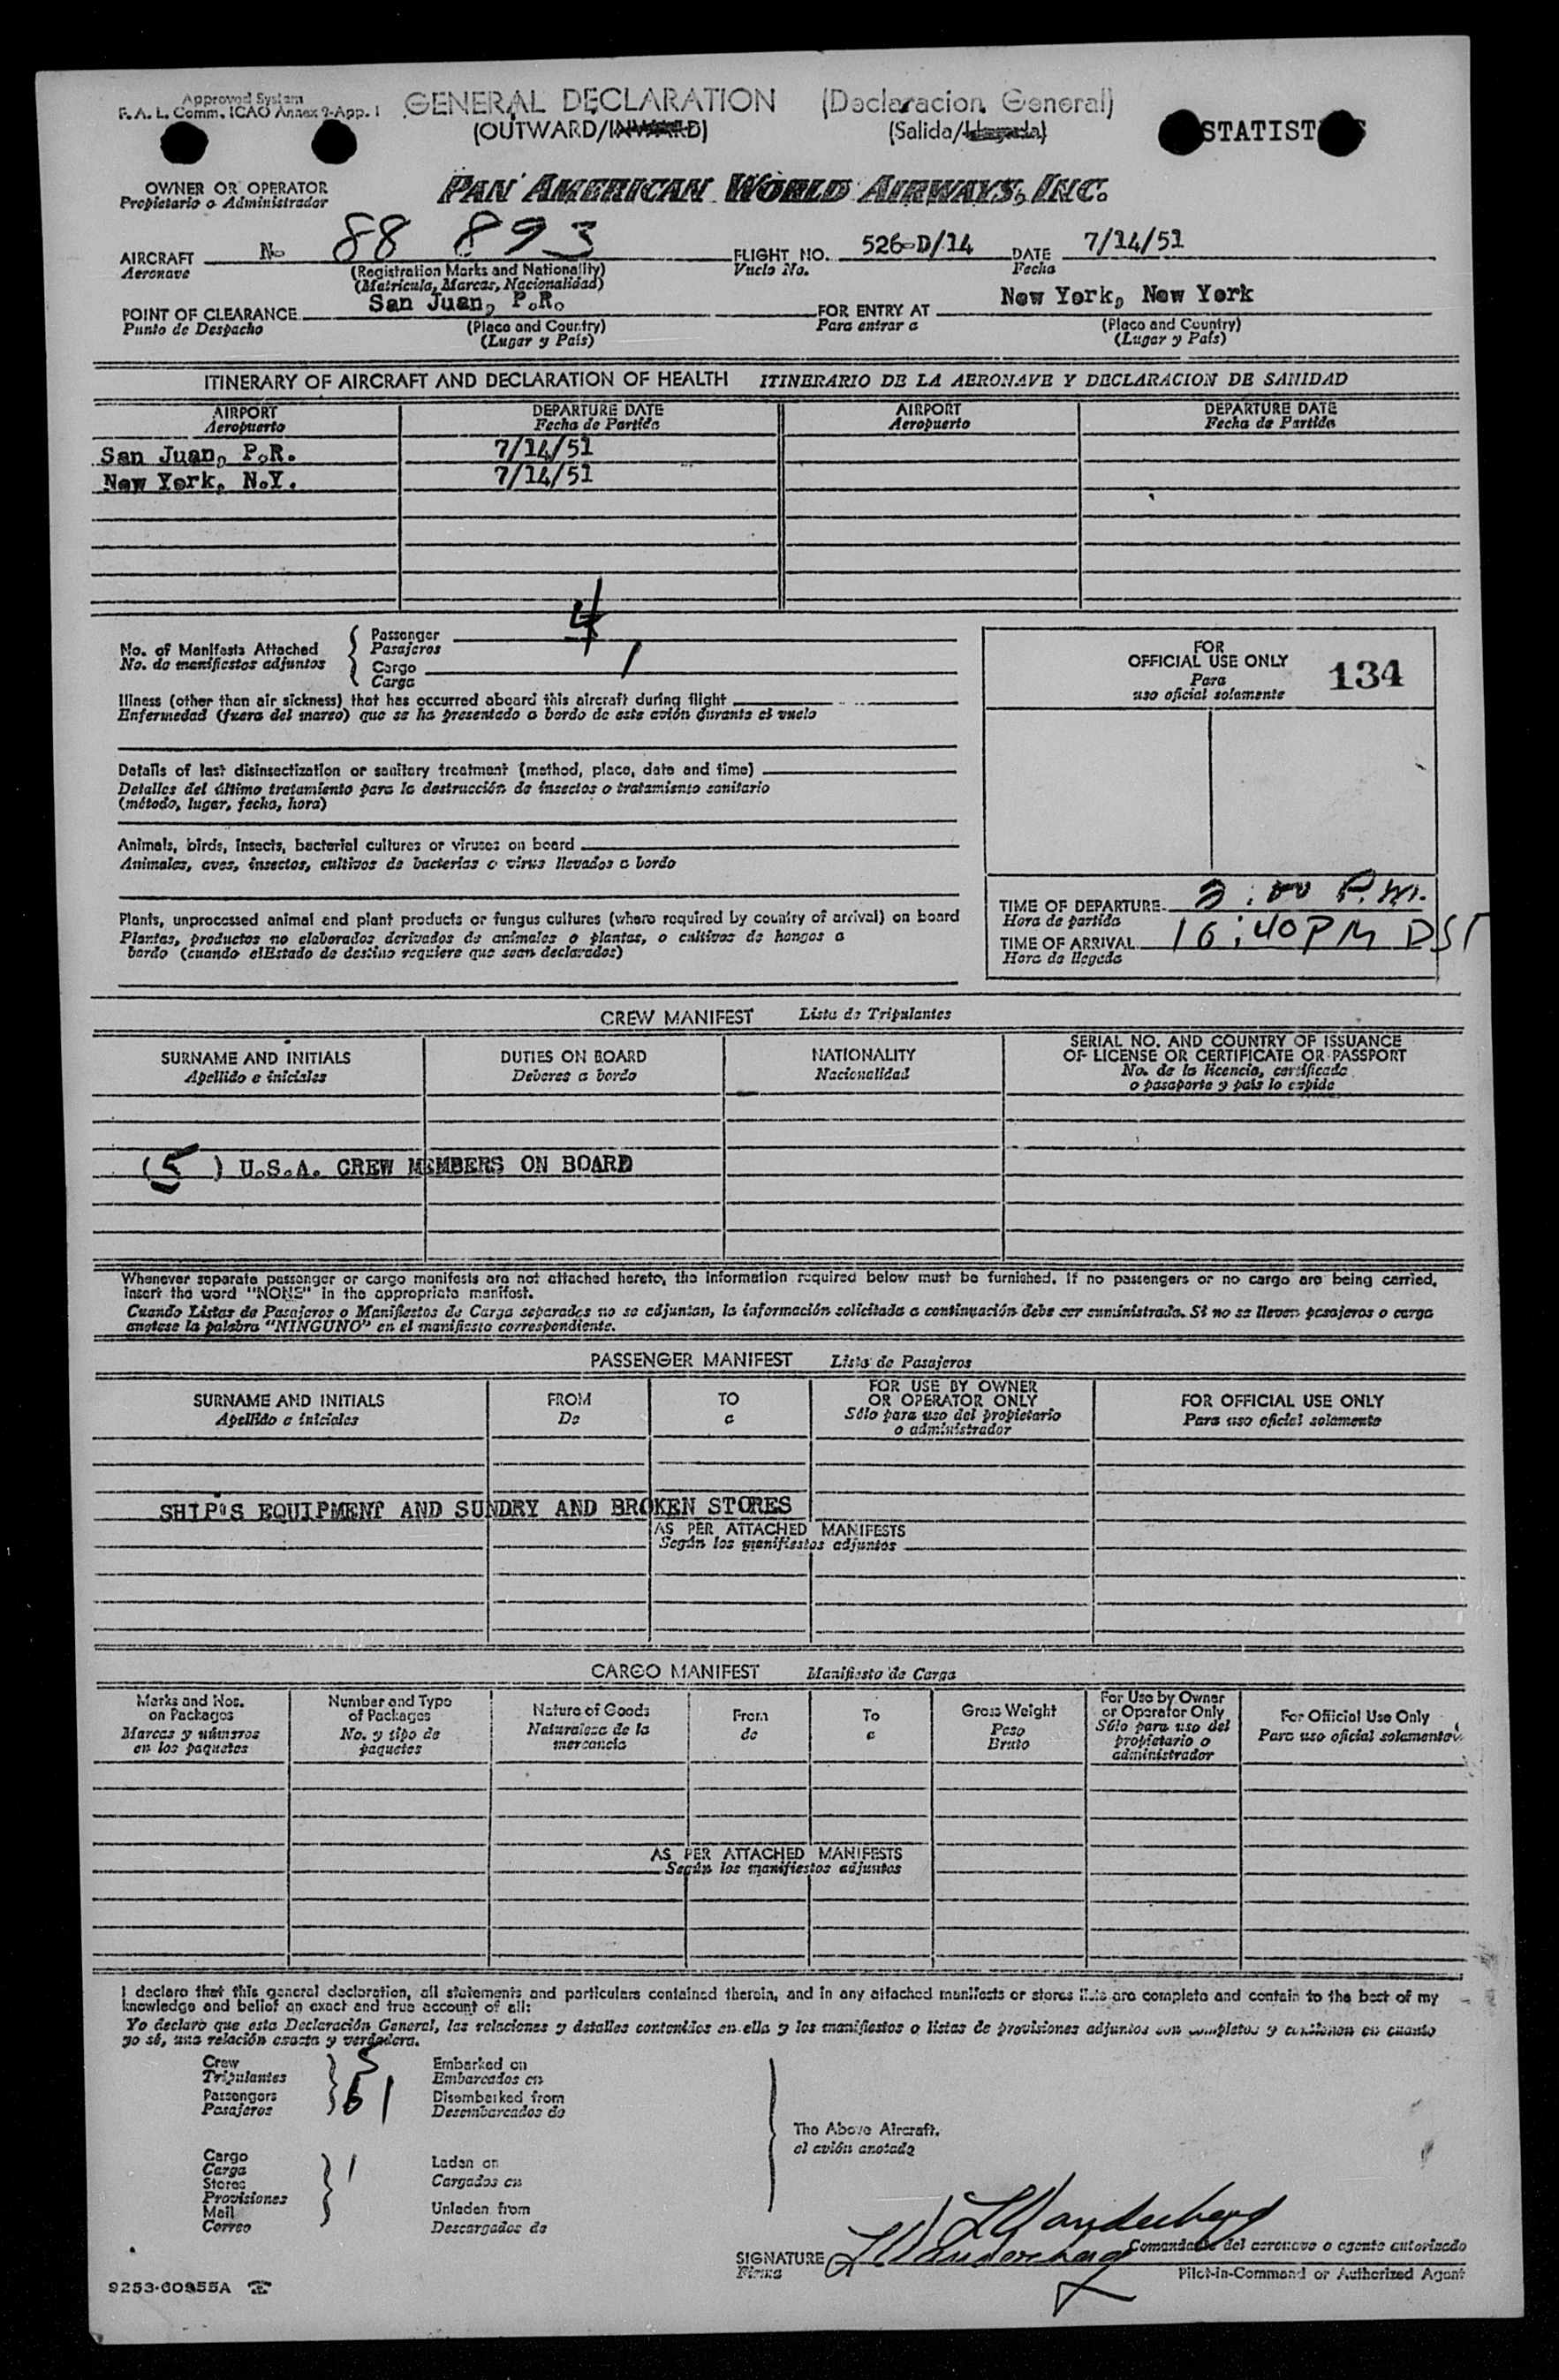 Approved System
F. A. L. Comm. ICAO Annex 9-App. 1
GENERAL DECLARATION (Declaracion General)
(OUTWARD/INWARD) (Salida/Llegada)
OWNER OR OPERATOR
Propietario o Administrador
PAN AMERICAN WORLD AIRWAYS, INC.
AIRCRAFT No 88 893 FLIGHT NO. 526-D/14 DATE 7/14/51
Aeronave (Registration Marks and Nationality) Vuelo No. Fecha
(Matricula, Marcas, Nacionalidad)
POINT OF CLEARANCE San Juan, P.R. FOR ENTRY AT New York, New York
Punto de Despacho (Place and Country) Para entrar a (Place and Country)
(Lugar y País) (Lugar y País)
ITINERARY OF AIRCRAFT AND DECLARATION OF HEALTH ITINERARIO DE LA AERONAVE Y DECLARACION DE SANIDAD
AIRPORT DEPARTURE DATE AIRPORT DEPARTURE DATE
Aeropuerto Fecha de Partida Aeropuerto Fecha de Partida
San Juan, P.R. 7/14/51
New York, N.Y. 7/14/51
No. of Manifests Attached
No. de manifiestos adjuntos
Passenger 4
Pasajeros
Cargo 1
Carga
FOR
OFFICIAL USE ONLY
Para
uso oficial solamente
134
Illness (other than air sickness) that has occurred aboard this aircraft during flight
Enfermedad (fuera del mareo) que se ha presentado a bordo de este avión durante el vuelo
Details of last disinsectization or sanitary treatment (method, place, date and time)
Detalles del último tratamiento para la destrucción de insectos o tratamiento sanitario
(método, lugar, fecha, hora)
Animals, birds, insects, bacterial cultures or viruses on board
Animales, aves, insectos, cultivos de bacterias o virus llevados a bordo
Plants, unprocessed animal and plant products or fungus cultures (where required by country of arrival) on board
Plantas, productos no elaborados derivados de animales o plantas, o cultivos de hongos a
bordo (cuando elEstado de destino requiere que sean declarados)
TIME OF DEPARTURE :00 P.M.
Hora de partida
TIME OF ARRIVAL 10:40 PM DST
Hora de llegada
CREW MANIFEST Lista de Tripulantes
SURNAME AND INITIALS DUTIES ON BOARD NATIONALITY SERIAL NO. AND COUNTRY OF ISSUANCE
OF LICENSE OR CERTIFICATE OR PASSPORT
Apellido e iniciales Deberes a bordo Nacionalidad No. de la licencia, certificado
o pasaporte y país lo expide
(5) U.S.A. CREW MEMBERS ON BOARD
Whenever separate passenger or cargo manifests are not attached hereto, the information required below must be furnished. If no passengers or no cargo are being carried,
insert the word "NONE" in the appropriate manifest.
Cuando Listas de Pasajeros o Manifiestos de Carga separados no se adjuntan, la información solicitada a continuación debe ser suministrada. Si no se lleven pasajeros o carga
anotese la palabra "NINGUNO" en el manifiesto correspondiente.
PASSENGER MANIFEST Lista de Pasajeros
SURNAME AND INITIALS FROM TO FOR USE BY OWNER
OR OPERATOR ONLY FOR OFFICIAL USE ONLY
Apellido e iniciales De a Sólo para uso del propietario
o administrador Para uso oficial solamente
SHIP'S EQUIPMENT AND SUNDRY AND BROKEN STORES
AS PER ATTACHED MANIFESTS
Según los manifiestos adjuntos
CARGO MANIFEST Manifiesto de Carga
Marks and Nos.
on Packages
Marcas y números
en los paquetes
Number and Type
of Packages
No. y tipo de
paquetes
Nature of Goods
Naturaleza de la
mercancía
From
de
To
a
Gross Weight
Peso
Bruto
For Use by Owner
or Operator Only
Sólo para uso del
propietario o
administrador
For Official Use Only
Para uso oficial solamente
AS PER ATTACHED MANIFESTS
Según los manifiestos adjuntos
I declare that this general declaration, all statements and particulars contained therein, and in any attached manifests or stores lists are complete and contain to the best of my
knowledge and belief an exact and true account of all:
Yo declaro que esta Declaración General, las relaciones y detalles contenidos en ella y los manifiestos o listas de provisiones adjuntos son completos y contienen en cuanto
yo sé, una relación exacta y verdadera.
Crew 5 Embarked on
Tripulantes Embarcados en
Passengers 61 Disembarked from
Pasajeros Desembarcados de
The Above Aircraft.
el avión anotado
Cargo 1 Laden on
Carga
Stores Cargados en
Provisiones
Mail Unladen from
Correo Descargados de
SIGNATURE
Firma
Comandante del aeronave o agente autorizado
Pilot-in-Command or Authorized Agent
9253-60955A